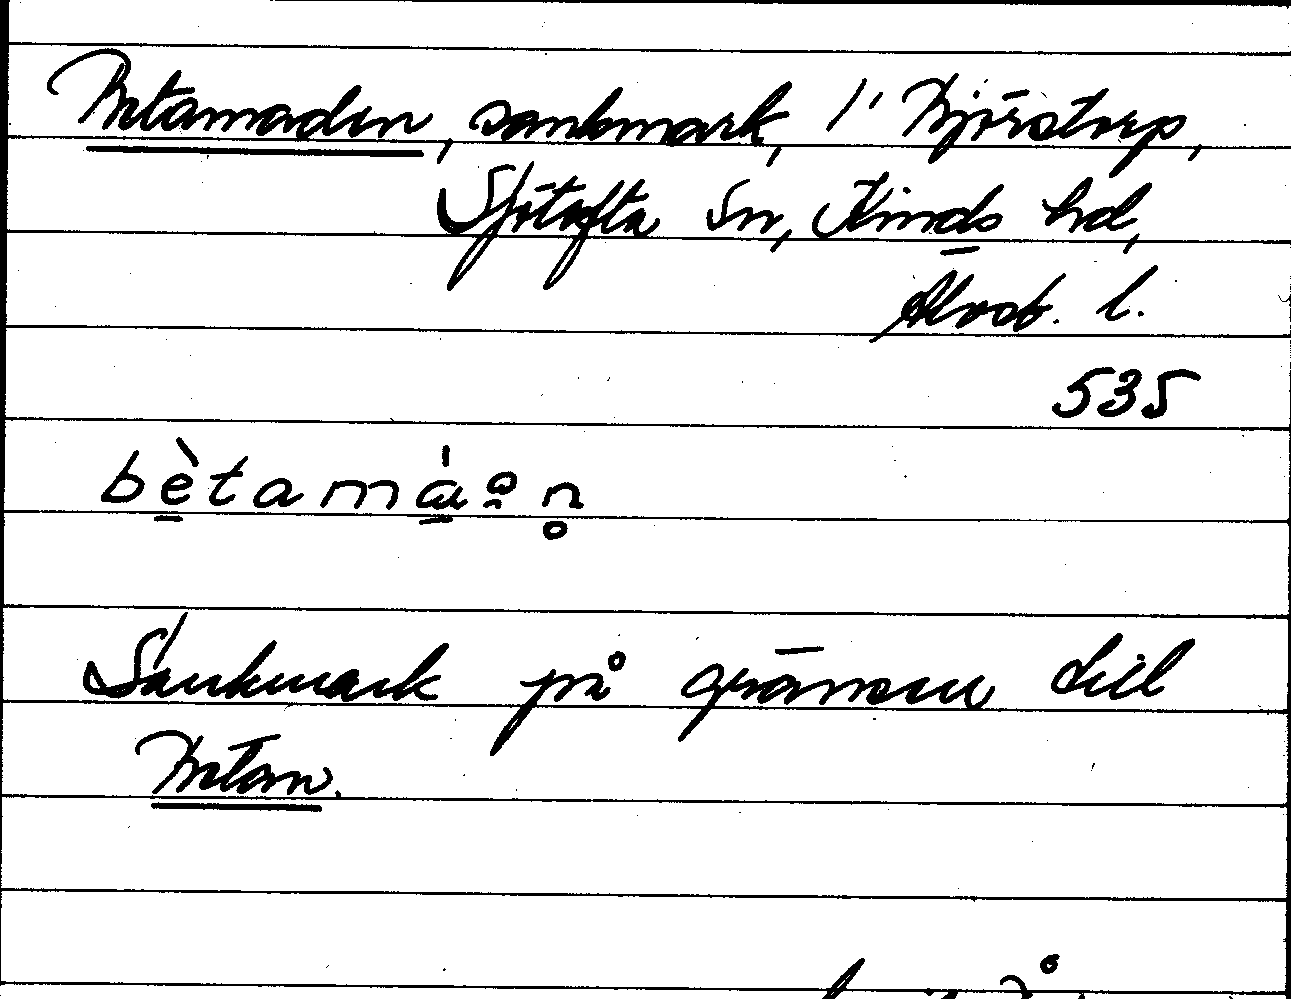 Betamaden, sankmark, i Björstorp,
Sjötofta sn, Kinds hd,
Älvsb. l.
535
bètamáən̥
Sankmark på gränsen till
Betan.